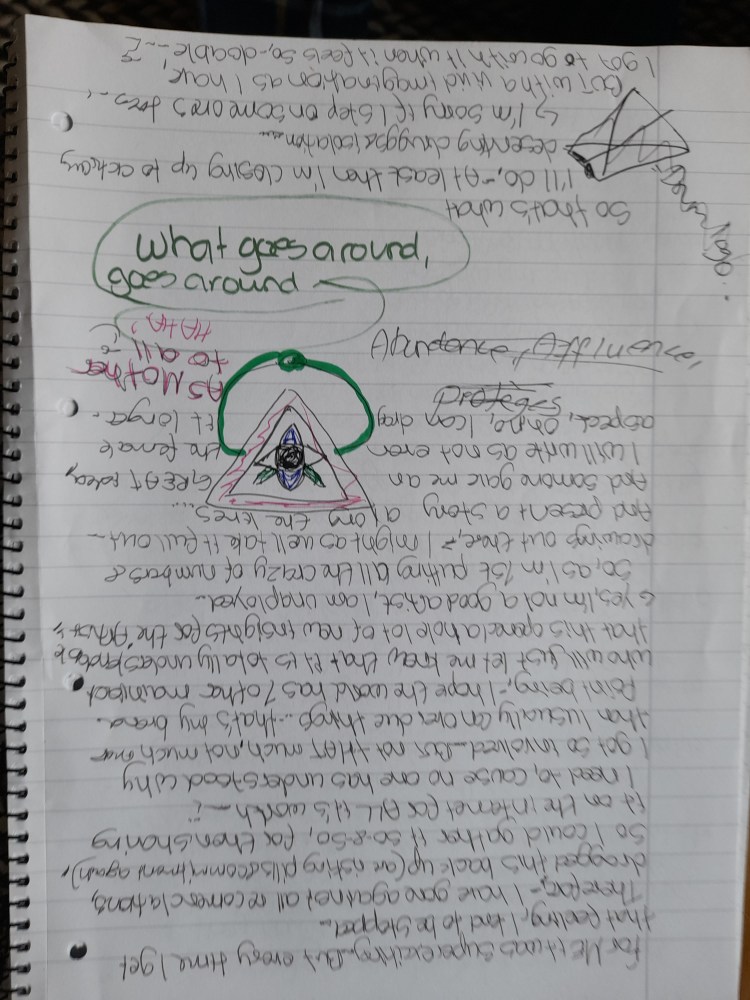 For Me it was super exciting... But every time I get
that feeling, I tend to be stopped...
Therefor,-, I have gone against all recomendations,
dragged this back up (an risking pills & comitment again),
So I could gather it so-&-so, for then sharing
it on the Internet for ALL it's worth—¿
I need to, cause no one has understood why
I got so involved... But not tHAt much, not much mor
than I usually can over due things... that's my brand.
Point being,-, I hope the world has 7 other maninset
who will just let me know that it is totally understandable
that this opened a hole lot of new insights for the "Artist"
↳ Yes, I'm not a good artist, I am unaployed...
So, as I'm 1st putting all the crazy of numbers &
drawing out there?, I might as well take it full out —
And present a story along the lines....
And Someone gave me an GREAT idea,
I will write as not even the female
aspect, oh no, I can drag it longer.
As Mother
to all
HAHA,
What goes around,
goes around
So that's what
I'll do,- At least then I'm closing up to actually
deserving druggs & isolation....
↳ I'm sorry if I step on someones toes...,
But with a wild imagination as I have,
I got to go with it when it feels so,- doable'....¿